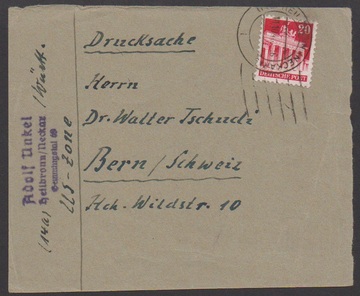 Drucksache
Herrn
Dr. Walter Tschudi
Bern/Schweiz
Hch. Wildstr. 10
Adolf Unkel
Heilbronn/Neckar /Württ.
Gemmingstal 69
(14a) US-Zone
20
DEUTSCHE POST